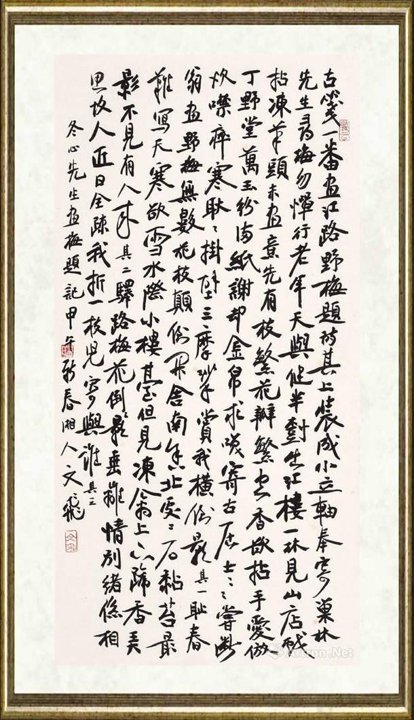 古箋一番畫江路野梅題詩其上裝成小立軸奉寄巢林
先生尋梅勿憚行老年天與健半樹出江樓一林見山店戲
拈凍筆頭未畫意先有枝繁花瓣繁空香欲拈手愛仿
丁野堂萬玉紛滿紙謝却金帛求笑寄古居士々々嘗斷
炊噤瘁寒耿々掛壁三摩挲賞我橫倒影其一耻春
翁畫野梅無數花枝顛倒開舍南舍北處々石黏苔最
難寫天寒欲雪水際小樓臺但見凍禽上下啼香弄
影不見有人來其二驛路梅花倒影垂離情別緒係相
思故人近日全疏我折一枝兒寄與誰其三
冬心先生畫梅題記甲午新春湘人文飛